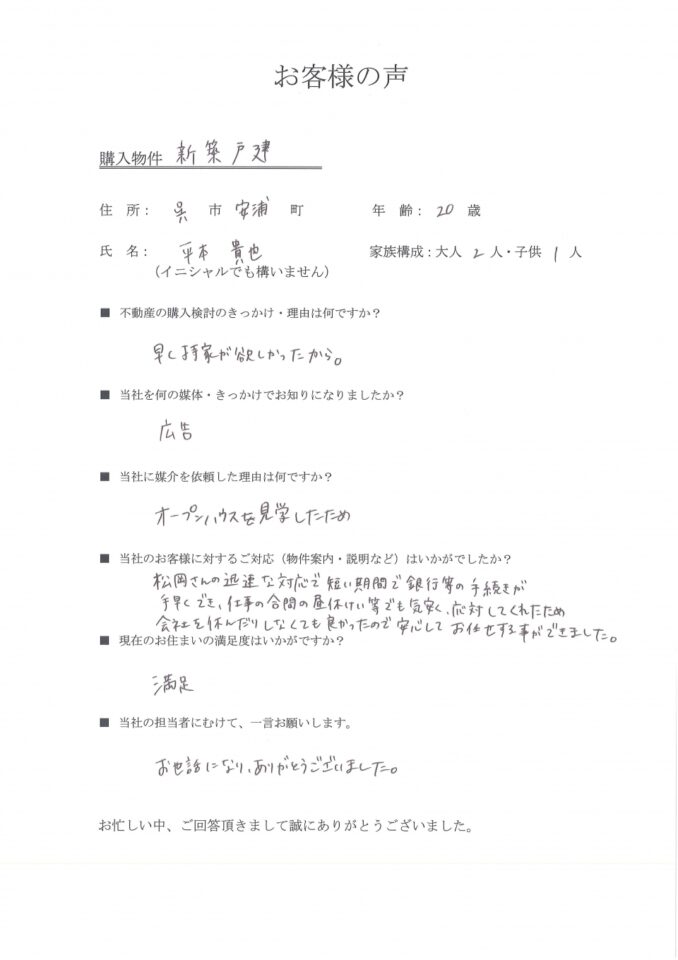 お客様の声
購入物件 新築戸建
住 所： 呉 市 安浦 町 年 齢： 20 歳
氏 名： 平本 貴也 家族構成：大人 2 人・子供 1 人
（イニシャルでも構いません）
■ 不動産の購入検討のきっかけ・理由は何ですか？
早く持家が欲しかったから。
■ 当社を何の媒体・きっかけでお知りになりましたか？
広告
■ 当社に媒介を依頼した理由は何ですか？
オープンハウスを見学したため
■ 当社のお客様に対するご対応（物件案内・説明など）はいかがでしたか？
松岡さんの迅速な対応で短い期間で銀行等の手続きが
手早くでき、仕事の合間の昼休けい等でも気安く、応対してくれたため
会社を休んだりしなくても良かったので安心してお任せする事ができました。
■ 現在のお住まいの満足度はいかがですか？
満足
■ 当社の担当者にむけて、一言お願いします。
お世話になり、ありがとうございました。
お忙しい中、ご回答頂きまして誠にありがとうございました。